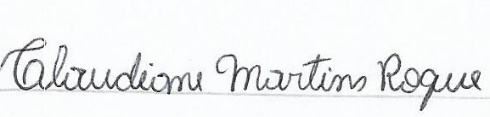 Claudiane Martins Roque